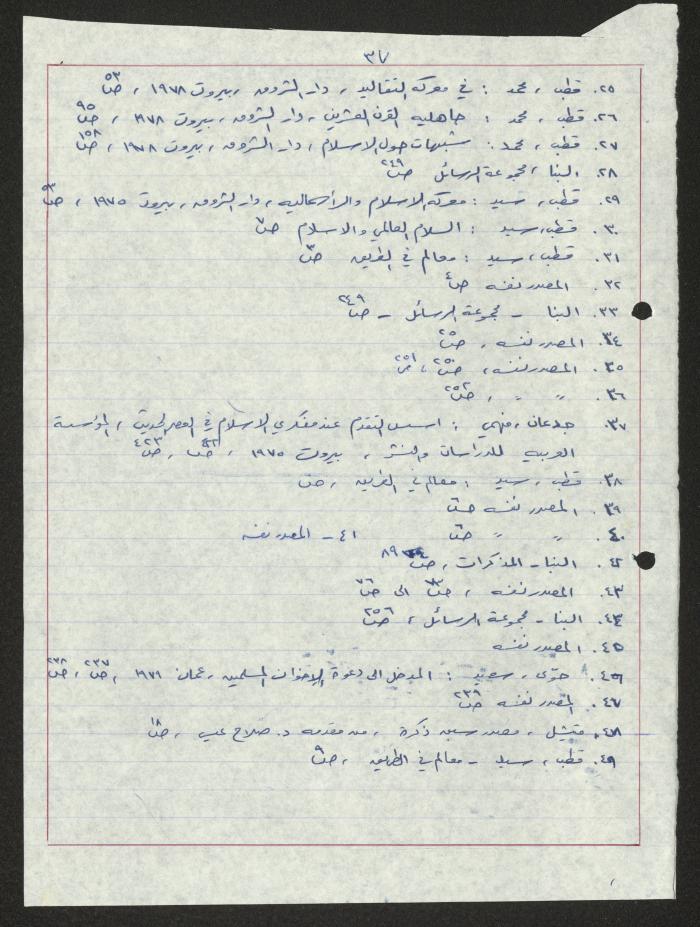 ٣٧
٢٥. قطب ، محمد : في معركة التقاليد ، دار الشروق ، بيروت ١٩٧٨ ، ص ٥٣
٢٦. قطب ، محمد : جاهلية القرن العشرين ، دار الشروق ، بيروت ١٩٧٨ ، ص ٩٥
٢٧. قطب ، محمد : شبهات حول الاسلام ، دار الشروق ، بيروت ١٩٧٨ ، ص ١٥٨
٢٨. البنا ، مجموعة الرسائل ص ٢٤٩
٢٩. قطب ، سيد : معركة الاسلام والرأسمالية ، دار الشروق ، بيروت ١٩٧٥ ، ص
٣٠. قطب ، سيد : السلام العالمي والاسلام ص
٣١. قطب ، سيد : معالم في الطريق ص
٣٢. المصدر نفسه ص ٤
٣٣. البنا - مجموعة الرسائل - ص ٢٤٩
٣٤. المصدر نفسه ، ص
٣٥. المصدر نفسه ، ص ٢٥٠ ، ص ٢٥١
٣٦. " " ، ص ٢٥٢
٣٧. جدعان ، فهمي : اسس التقدم عند مفكري الاسلام في العصر الحديث ، المؤسسة
العربية للدراسات والنشر ، بيروت ١٩٧٥ ، ص ، ص ٤٢٣
٣٨. قطب ، سيد : معالم في الطريق ، ص
٣٩. المصدر نفسه ص
٤٠. " " ص ٤١ - المصدر نفسه
٤٢. البنا - المذكرات ، ص ٨٩
٤٣. المصدر نفسه ، ص الى ص ٧٦
٤٤. البنا - مجموعة الرسائل ، ص ٢٥٦
٤٥. المصدر نفسه
٤٦. حوى ، سعيد : المدخل الى دعوة الاخوان المسلمين ، عمان ١٩٧٩ ، ص ٢٣٧ ، ص ٢٣٨
٤٧. المصدر نفسه ص ٢٣٩
٤٨. ميتشل ، مصدر سبق ذكره ، من مقدمة د. صلاح عيسى ، ص ١٨
٤٩. قطب ، سيد - معالم في الطريق ، ص ٩